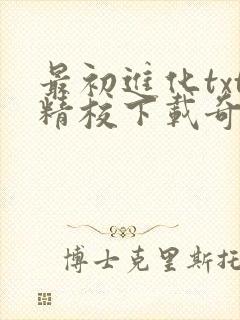 最初進化txt
精校下載奇
博士克里斯托